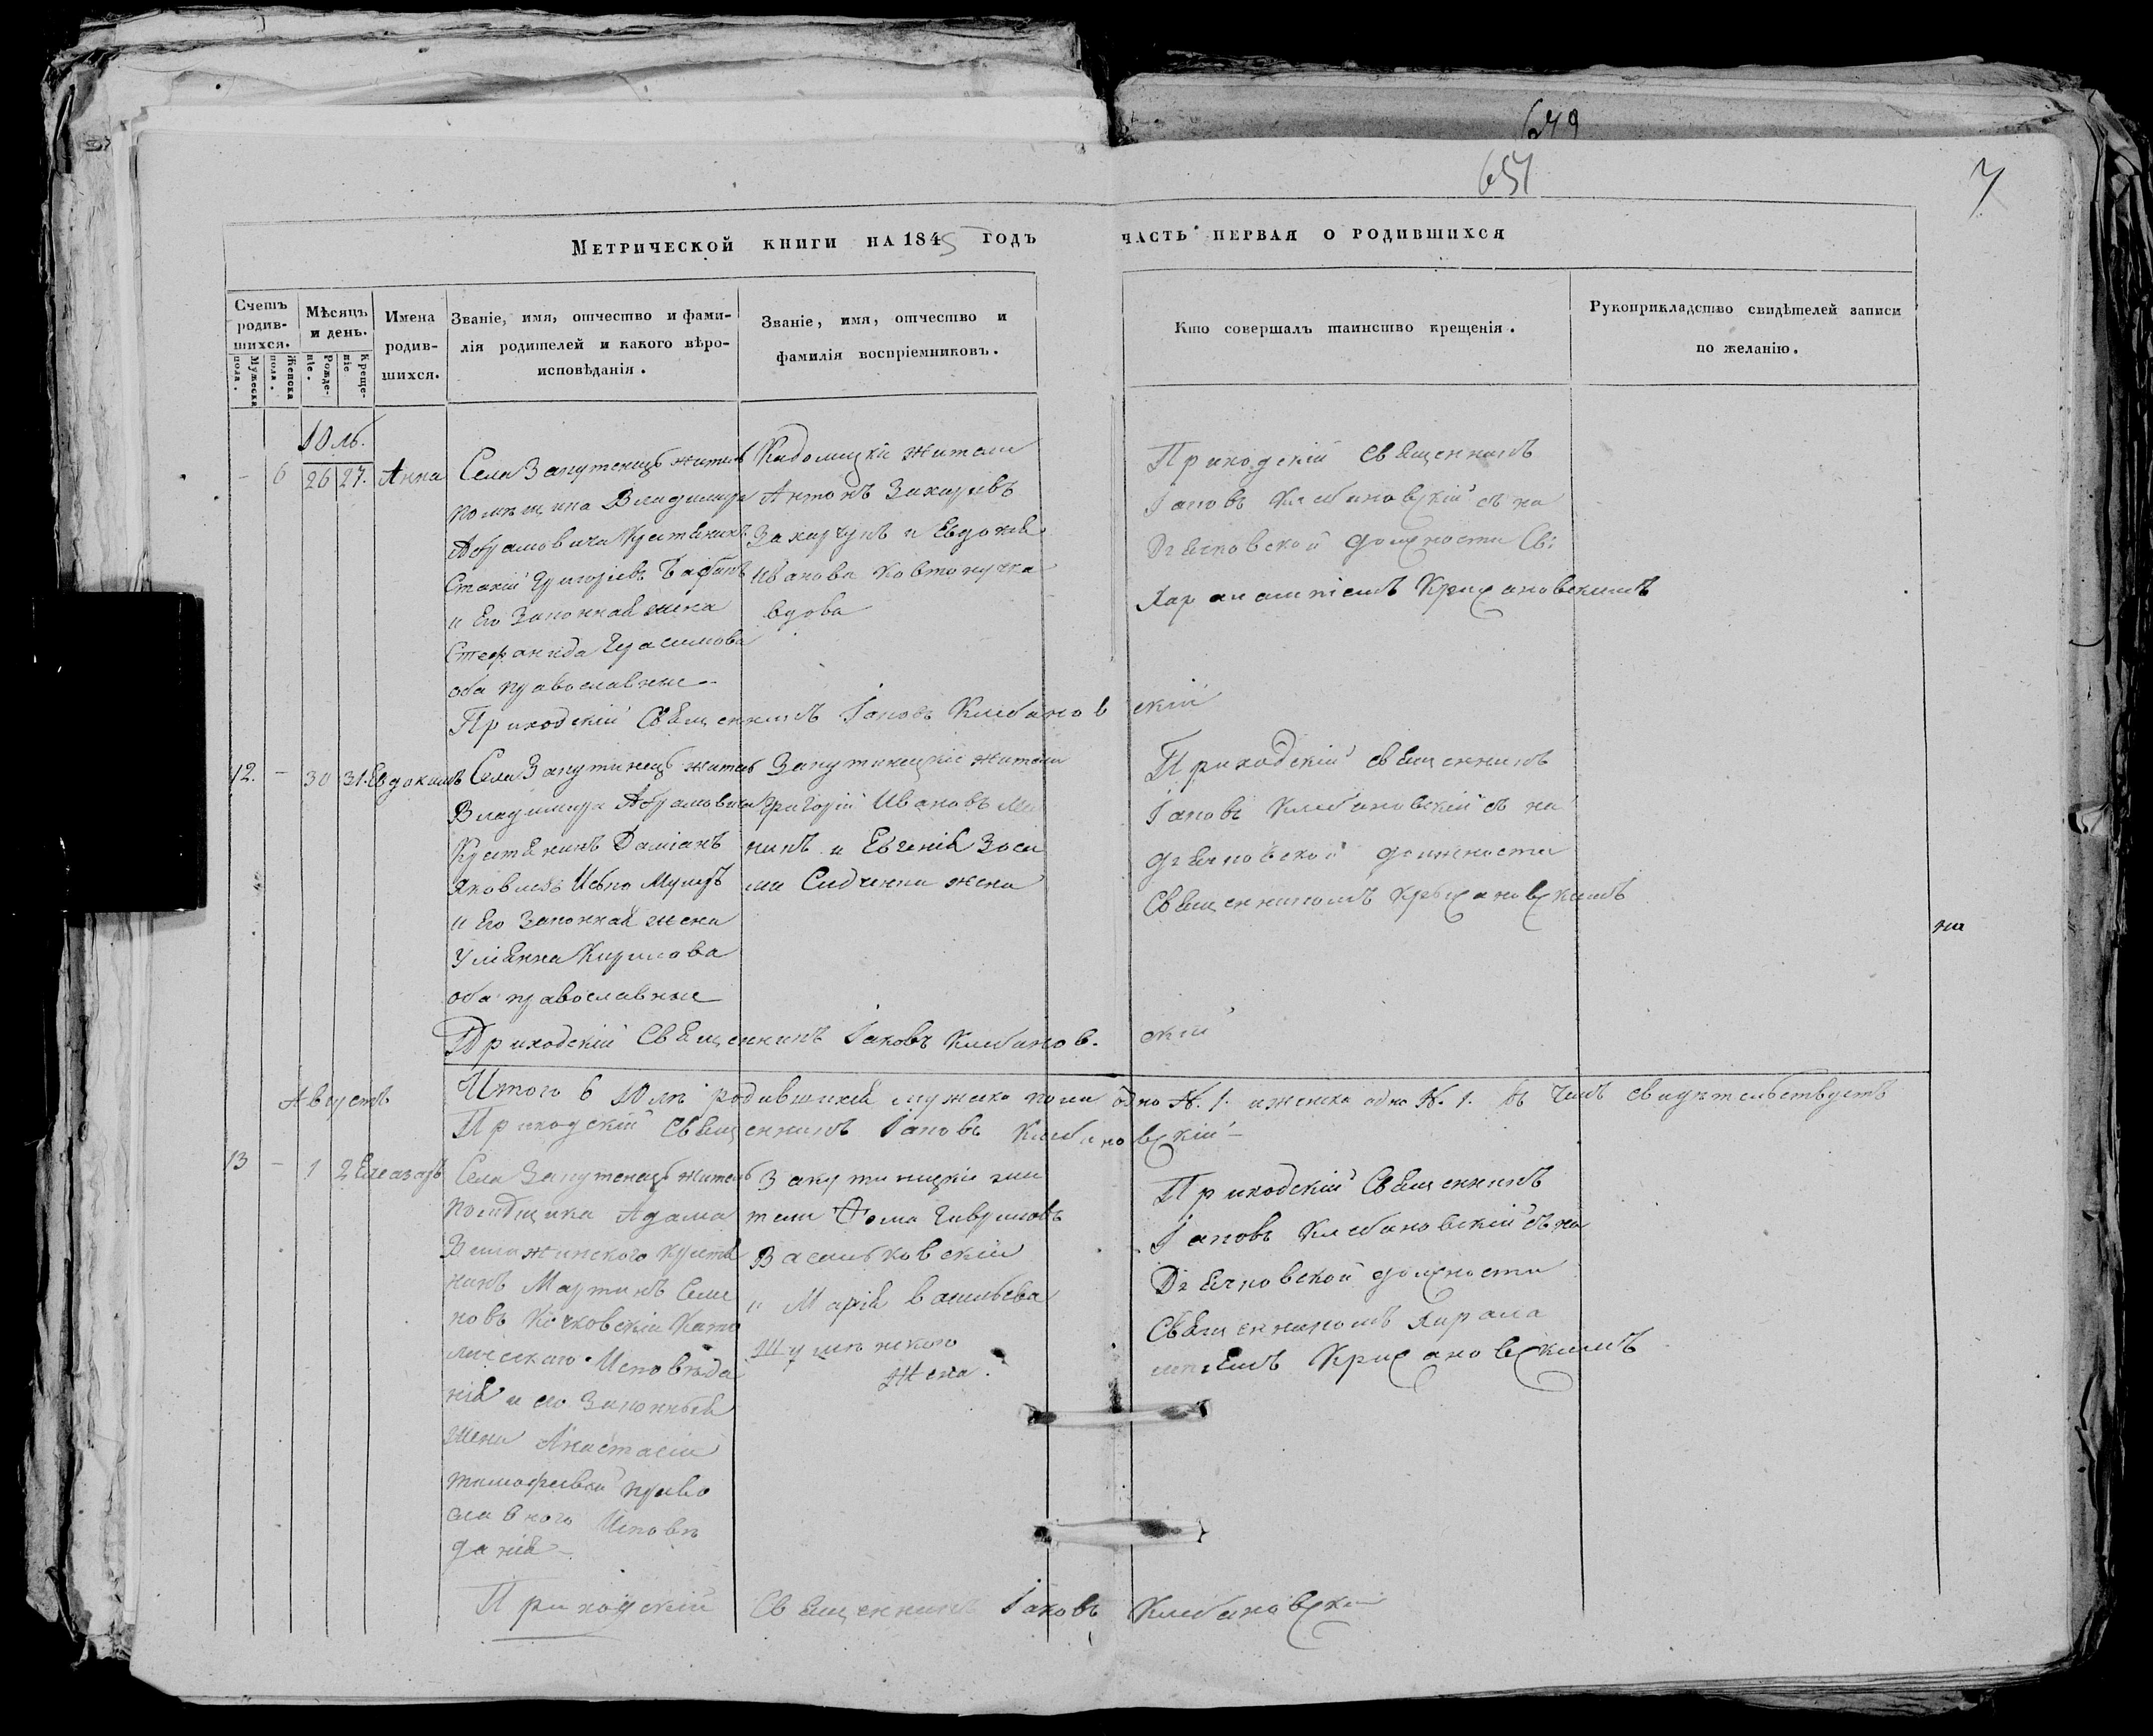 679
651
7
Метрической книги на 1845 годъ
часть первая о родившихся
Счетъ родив-шихся.
Мужеска пола.
Женска пола.
Мѣсяцъ и день.
Рожде-ніе.
Креще-ніе
Имена родив-шихся.
Званіе, имя, отчество и фами-
лія родителей и какого вѣро-
исповѣданія.
Званіе, имя, отчество и
фамилія воспріемниковъ.
Кто совершалъ таинство крещенія.
Рукоприкладство свидѣтелей записи
по желанію.
Юль.
- 6 26 27. Анна
Села житель
помѣщика Владимира
Абрамовича Крестянинъ
Григоріевъ
и Его Законная жена
Стефанида Герасимова
оба православные
жители
Антонъ Захаріевъ
Захарчукъ и Евдокія
Иванова
вдова
Приходскій Священникъ
Іаковъ Клебановскій съ на
Дьячковской должности Св:
Харалампіемъ Крижановскимъ
Приходскій Священникъ Іаковъ Клебановскій
12. - 30 31. Евдокимъ
Села житель
Владимира Абрамовича
Крестянинъ Даміанъ
Яковлевъ
и Его Законная жена
Уліянна Кирилова
оба православные
жители
Григорій Ивановъ
и Евгенія
жена
Приходскій Священникъ
Іаковъ Клебановскій съ на
дьячковской должности
Священникомъ Крыжановскимъ
на
Приходскій Священникъ Іаковъ Клебановскій
Августъ
Итого в Юлѣ родившихся мужеска пола одно N. 1. и женска одно N. 1. въ чемъ свидѣтельствуетъ
Приходскій Священникъ Іаковъ Клебановскій
13 - 1 2 Елеазаръ
Села житель
Помѣщика Адама
Крестя
нинъ Мартинъ Семе
новъ Като
лическаго Исповѣда
нія и его Законныя
жены Анастасіи
Тимофеевой право
славного Исповѣ
данія
жи
тели Фома Гавриловъ
Васильковскій
и Марія Васильева
жена.
Приходскій Священникъ
Іаковъ Клебановскій съ на
Дьячковской должности
Священникомъ Харала
мпіемъ Крижановскимъ
Приходскій Священникъ Іаковъ Клебановскій